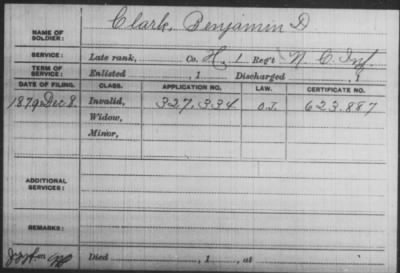 NAME OF SOLDIER: Clark, Benjamin D
SERVICE: Late rank, Co. H, 1 Reg't N C Inf.
TERM OF SERVICE: Enlisted , 1 Discharged , 1
DATE OF FILING. CLASS. APPLICATION NO. LAW. CERTIFICATE NO.
1879 Dec 8. Invalid, 327,334 O.J. 623,887
Widow,
Minor,
ADDITIONAL SERVICES:
REMARKS:
Died , 1 , at